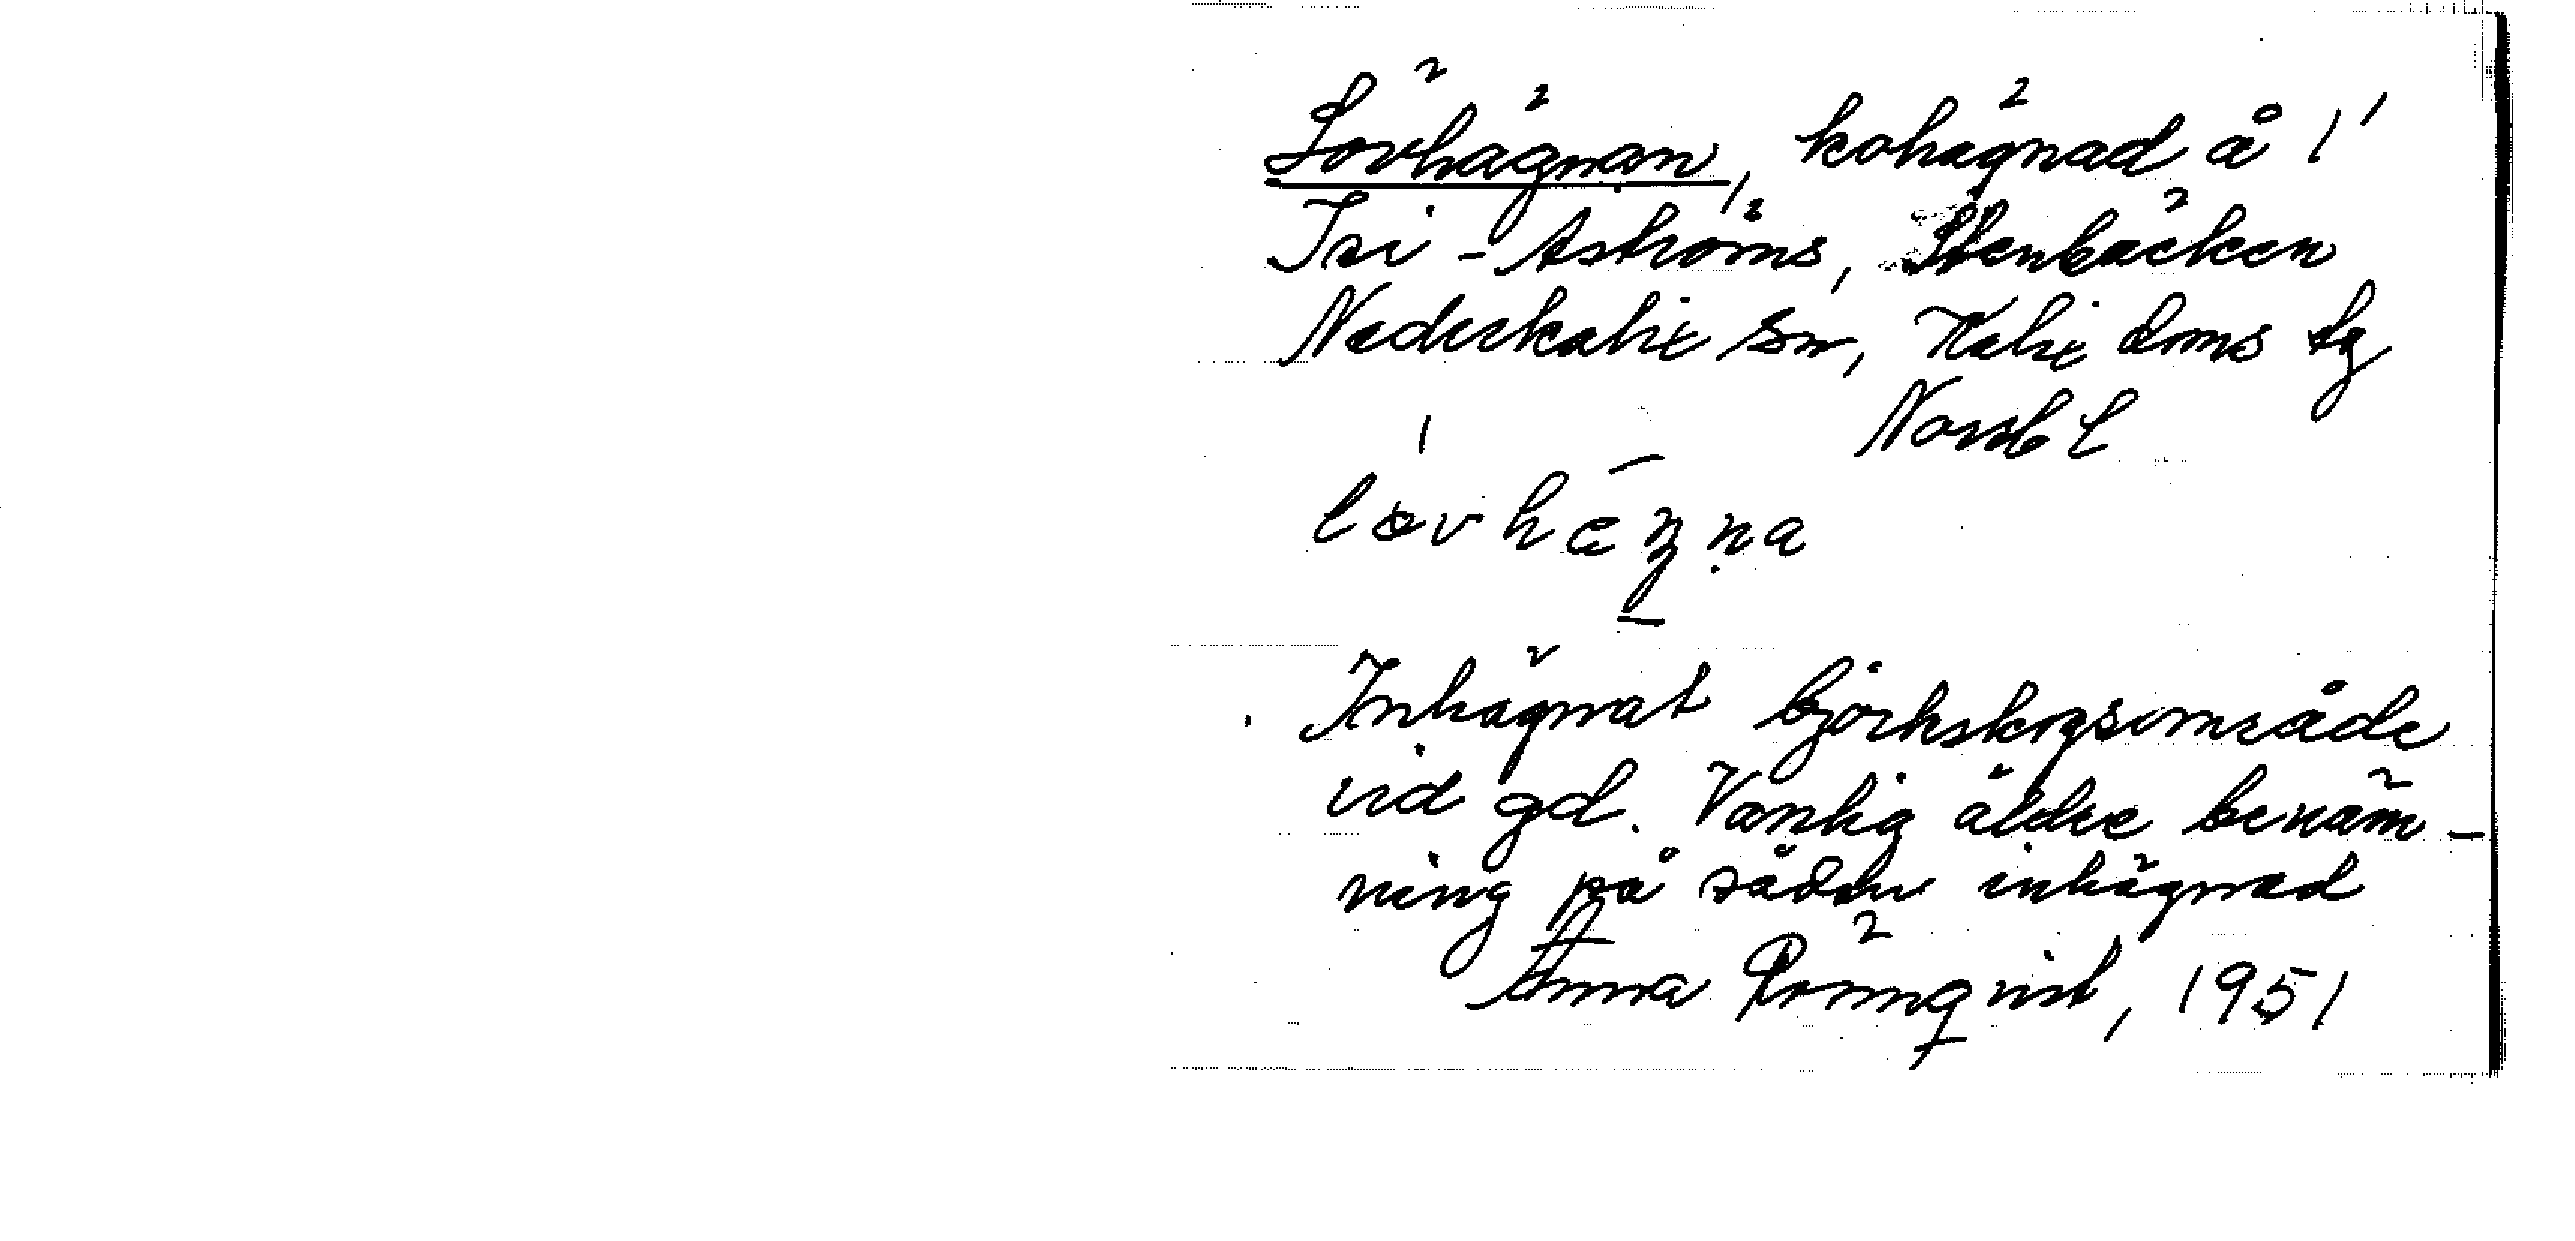 Lövhägnan, kohägnad å 1'
Isi-Åströms, Stenbäcken
Nederkalix sn, Kalix doms tg
Norrb l
løvhæŋna
Inhägnat björkskogsområde
vid gd. Vanlig äldre benäm-
ning på sådan inhägnad
Anna Rönnqvist, 1951